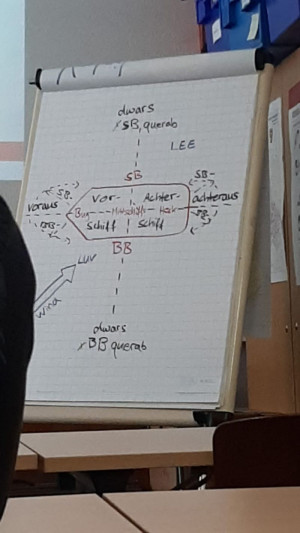 dwars
SB, querab
LEE
SB
SB-
SB-
voraus
Vor-
Achter-
achteraus
Bug
Mittschiffs
Heck
BB-
Schiff
Schiff
BB-
BB
LUV
wind
dwars
BB querab